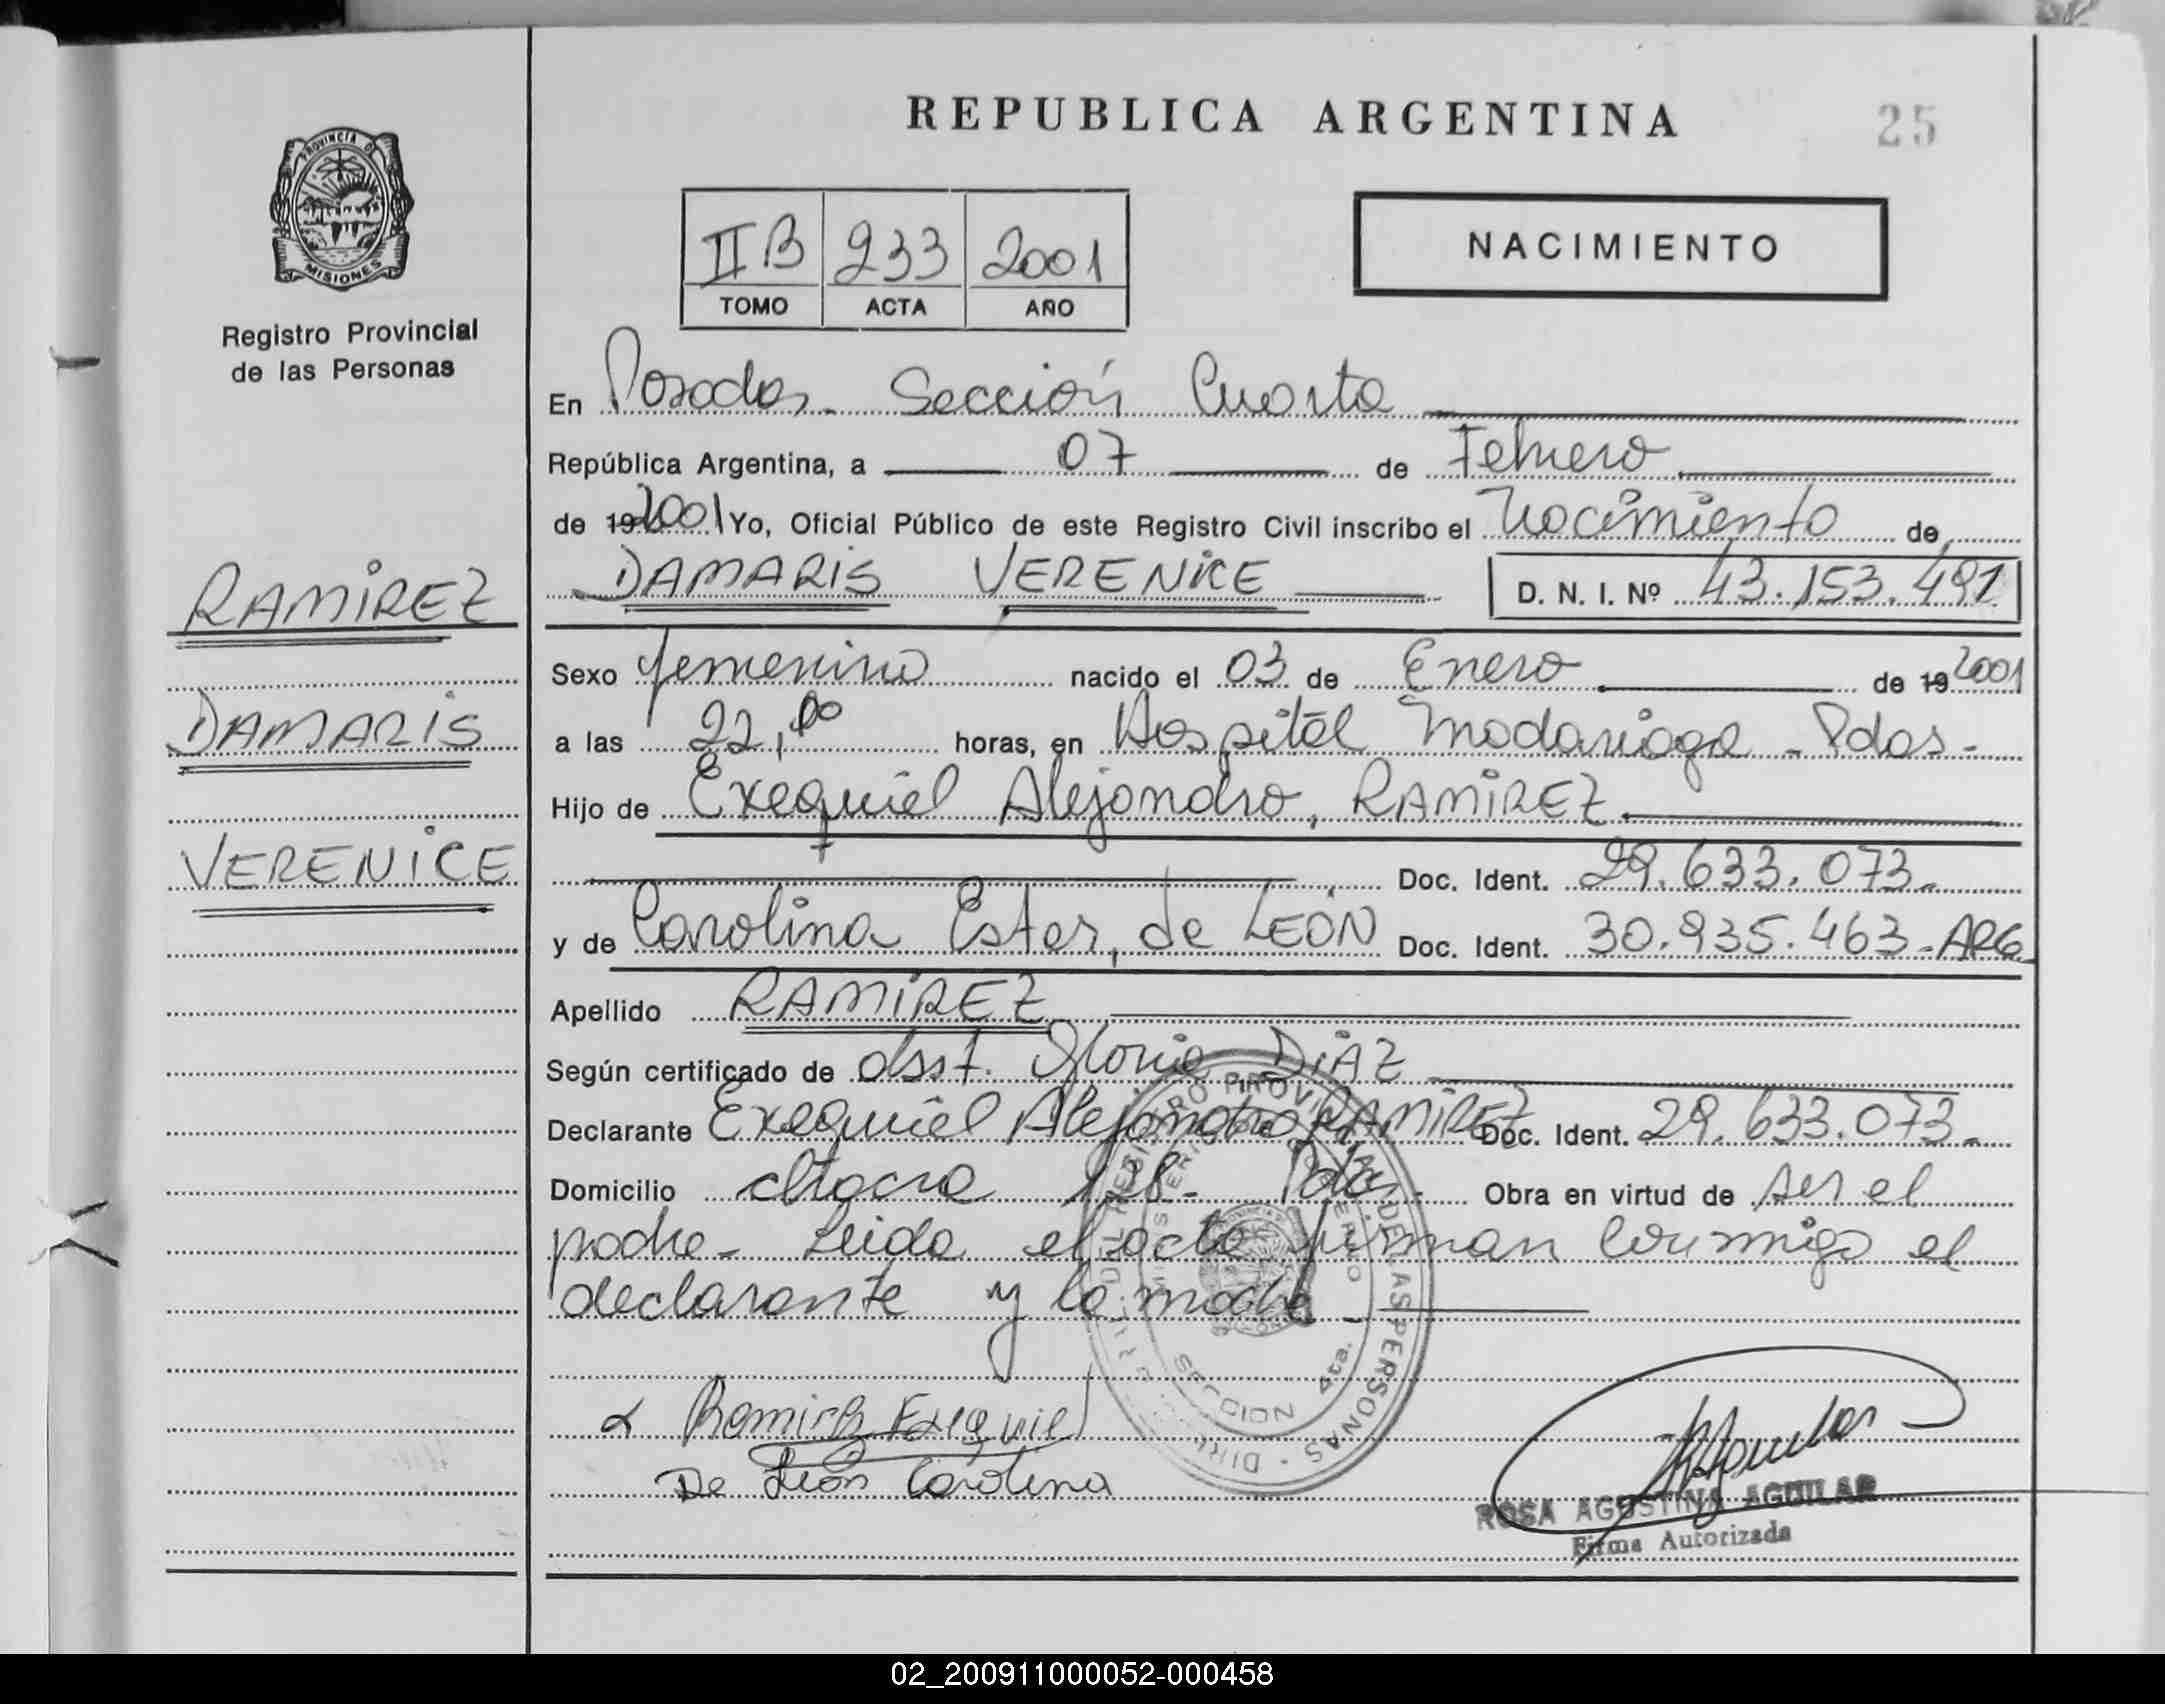 REPUBLICA ARGENTINA
25
PROVINCIA DE
MISIONES
Registro Provincial
de las Personas
II B 233 2001
TOMO ACTA AÑO
NACIMIENTO
En Posadas. Sección Cuarta
República Argentina, a 07 de Febrero
de 19 2001 Yo, Oficial Público de este Registro Civil inscribo el Nacimiento de
DAMARIS VERENICE D. N. I. Nº 43.153.491
RAMIREZ
DAMARIS
VERENICE
Sexo femenino nacido el 03 de Enero de 19 2001
a las 22,00 horas, en Hospital Madariaga - Pdas-
Hijo de Exequiel Alejandro, RAMIREZ
Doc. Ident. 29.633.073-
y de Carolina Ester, de LEÓN Doc. Ident. 30.935.463-ARG
Apellido RAMIREZ
Según certificado de Gloria DIAZ
Declarante Exequiel Alejandro RAMIREZ Doc. Ident. 29.633.073-
Domicilio chacra Pdas. Obra en virtud de ser el
padre- Leida el acta firman conmigo el
declarante y la madre
Ramirez Exequiel
De León Carolina
REGISTRO PROVINCIAL DE LAS PERSONAS
SECCION 4ta.
ROSA AGUSTINA AGUILAR
Firma Autorizada
02_200911000052-000458